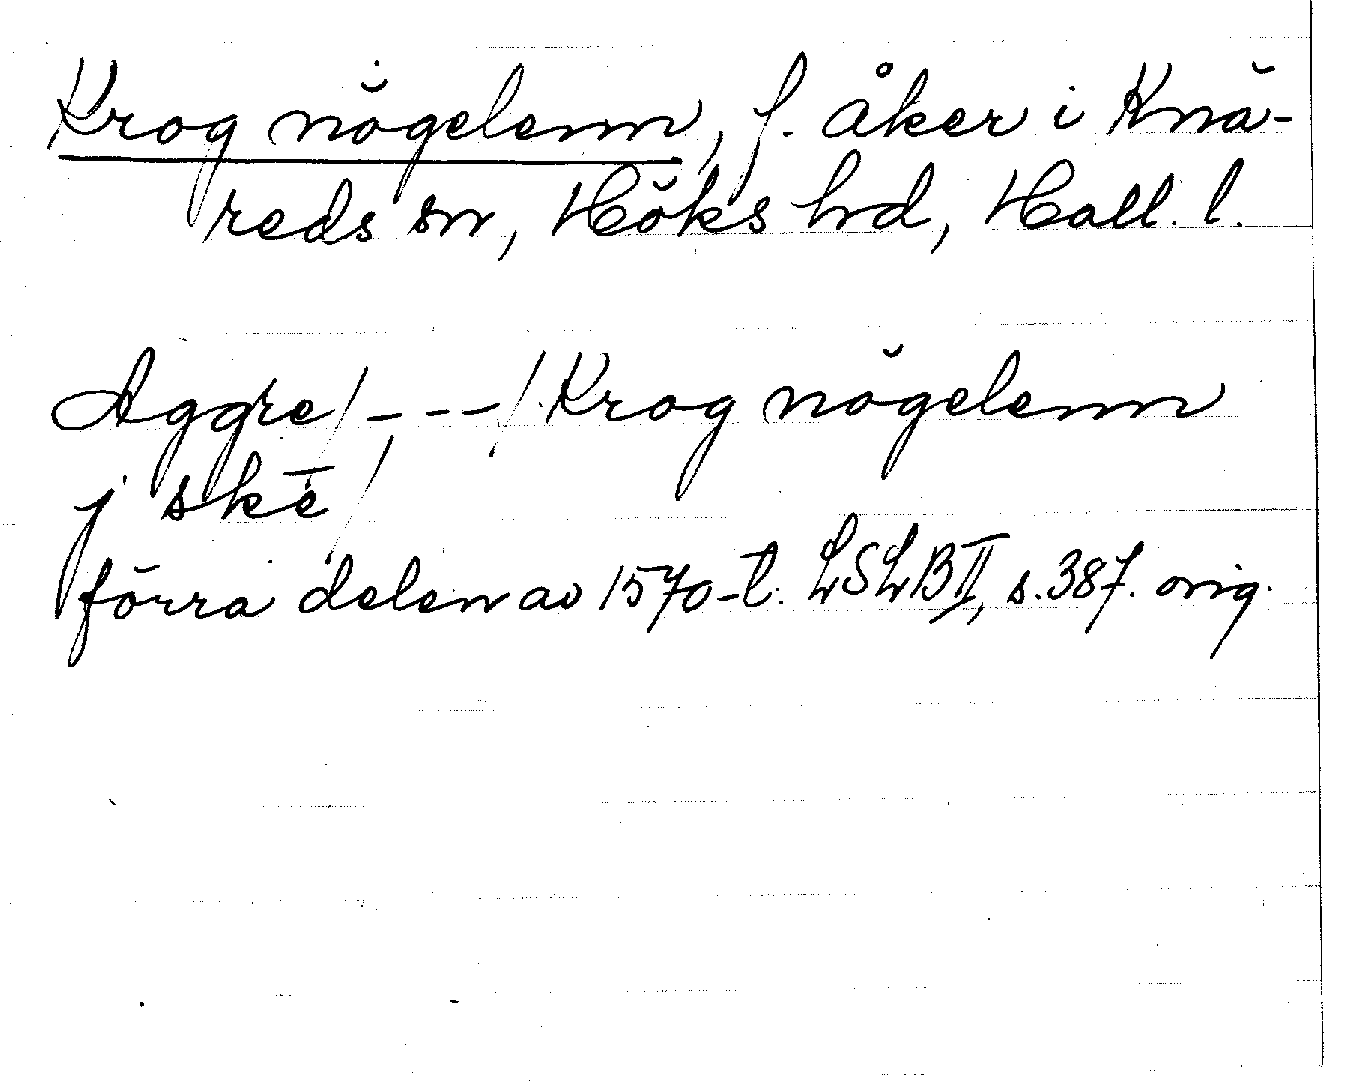 Krog nögelenn, f. åker i Knä-
reds sn, Höks hrd, Hall. l.
Aggre /---/ Krog nögelenn
j skē /
förra delen av 1570-t. LSLB II, s. 387. orig.